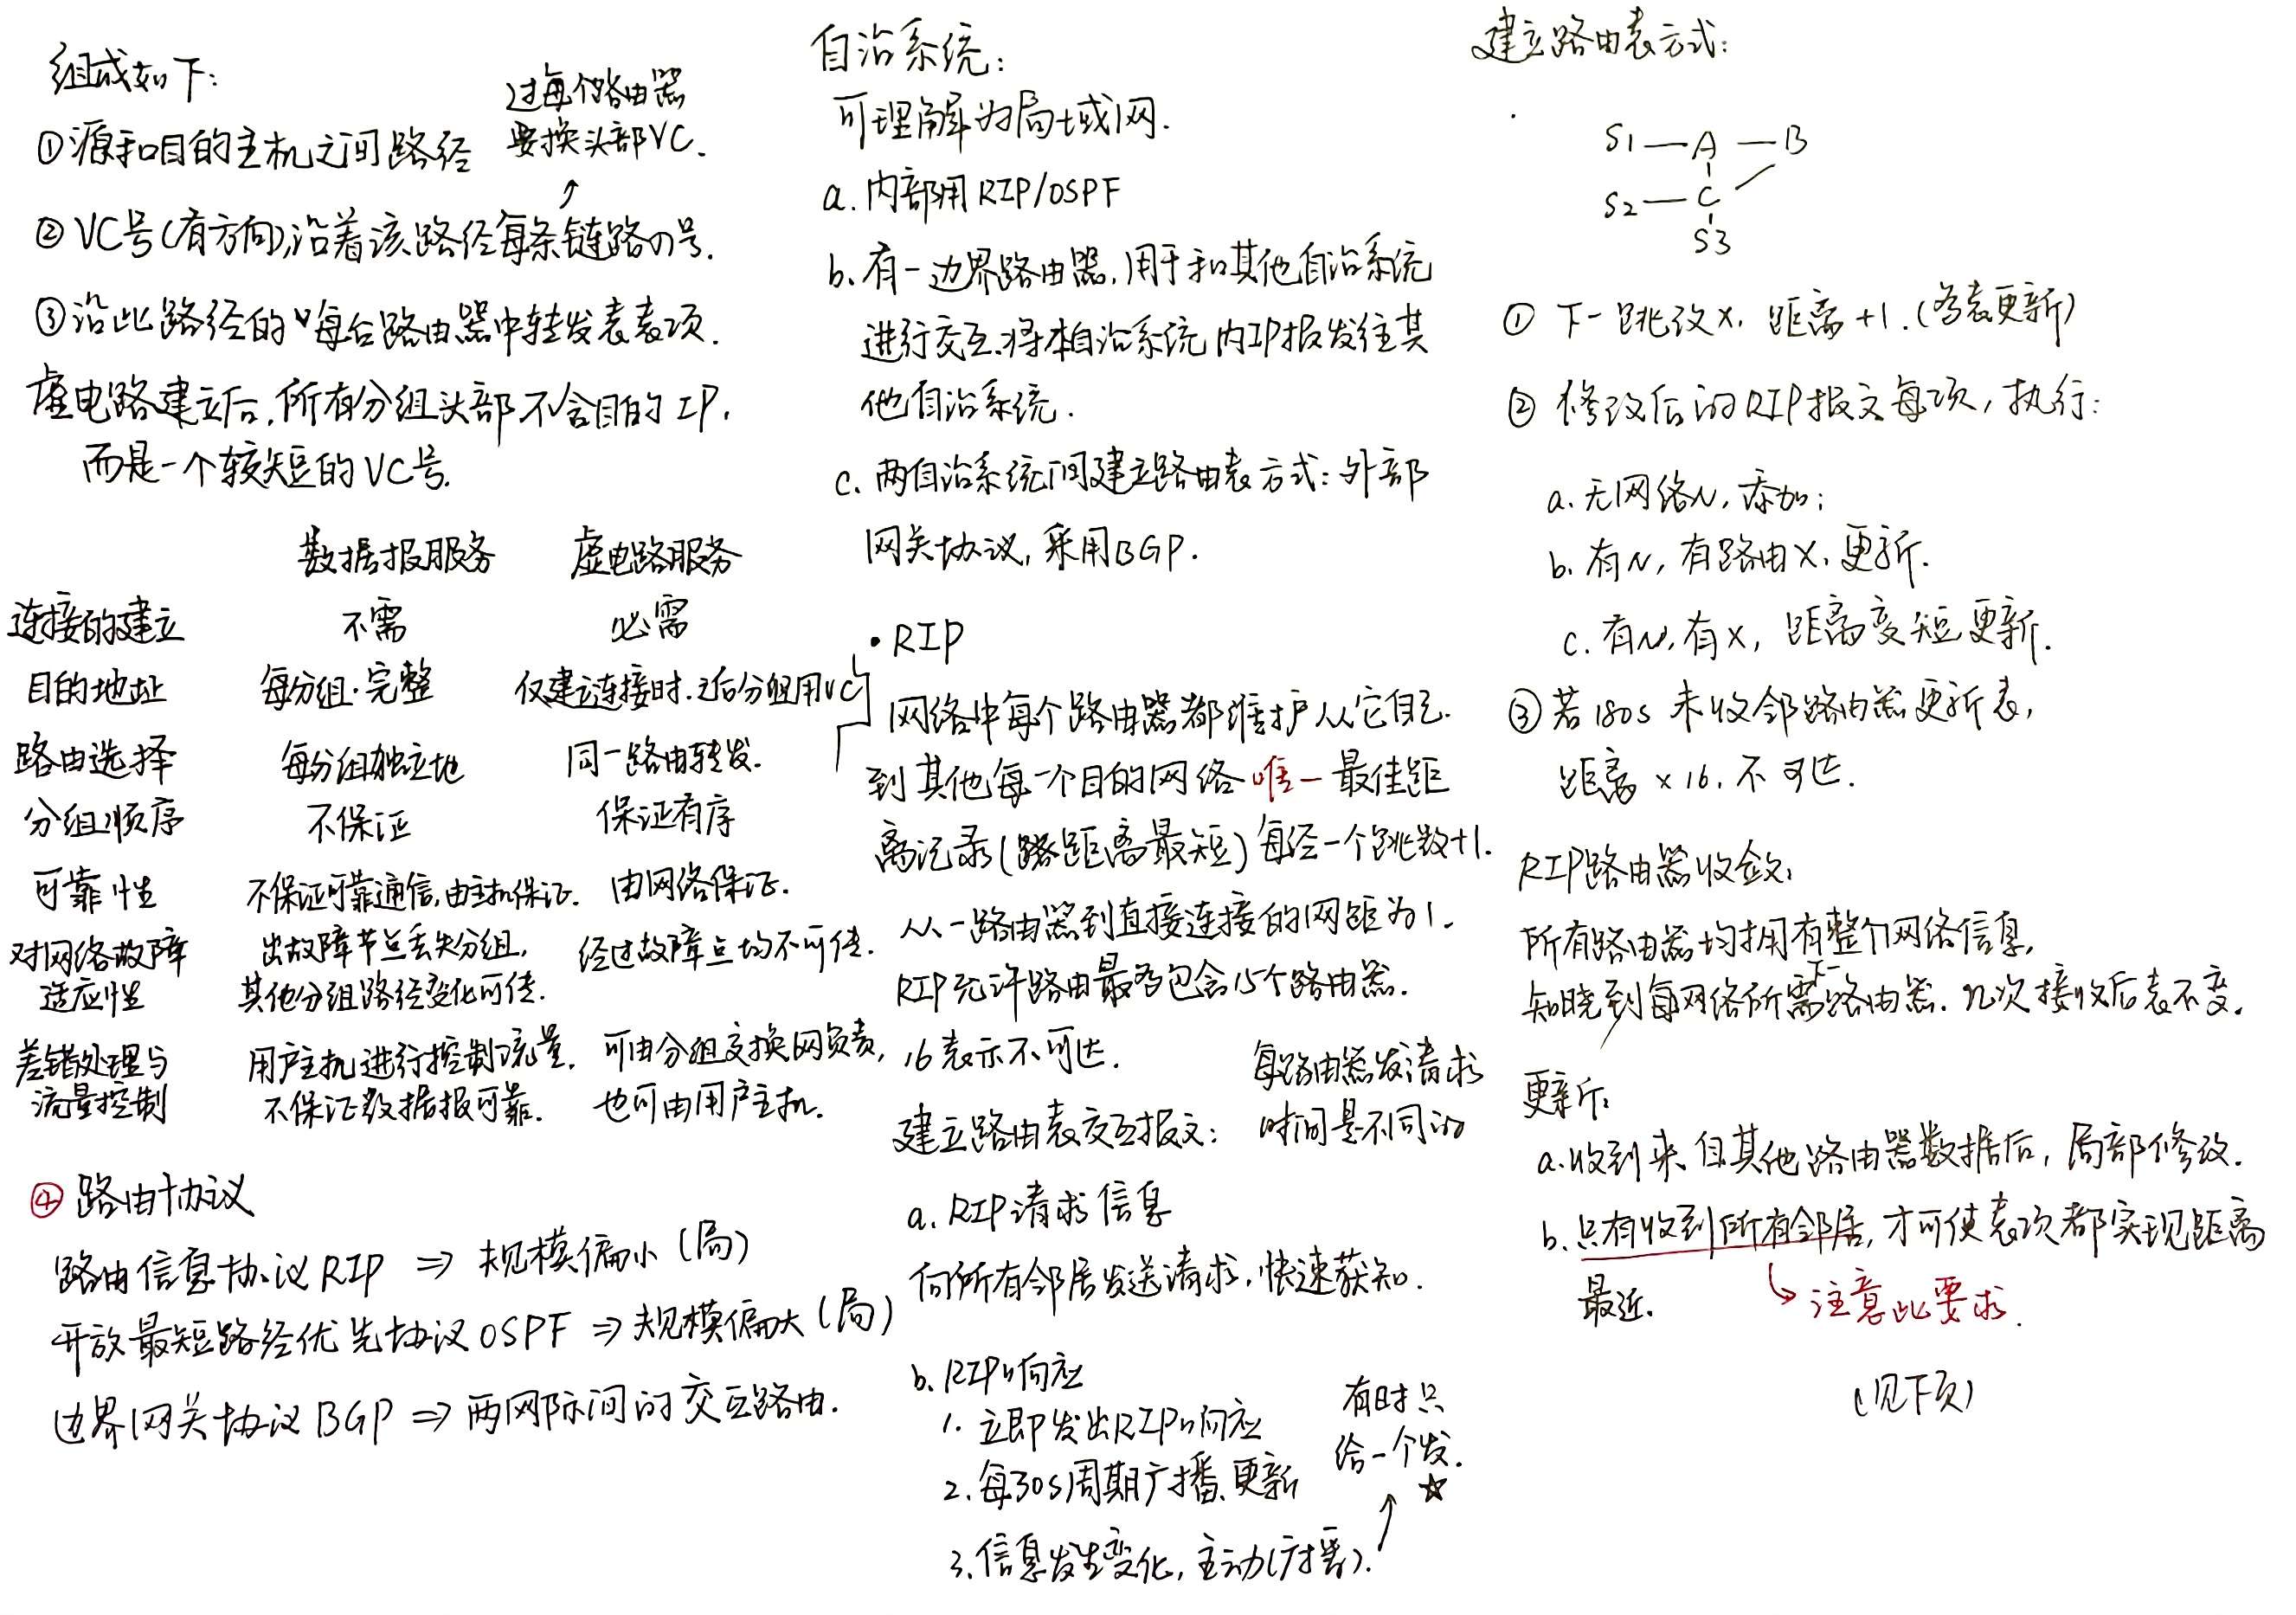 组成如下:
过每个路由器
要换头部VC.
①源和目的主机之间路径
②VC号(有方向),沿着该路径每条链路的号.
③沿此路径的每台路由器中转发表表项.
虚电路建立后,所有分组头部不含目的IP,
而是一个较短的VC号.
数据报服务 虚电路服务
连接的建立 不需 必需
目的地址 每分组·完整 仅建立连接时.之后分组用VC
路由选择 每分组独立地 同一路由转发.
分组顺序 不保证 保证有序
可靠性 不保证可靠通信,由主机保证. 由网络保证.
对网络故障 出故障节点丢失分组, 经过故障点均不可传.
适应性 其他分组路径变化可传.
差错处理与 用户主机进行控制流量. 可由分组交换网负责,
流量控制 不保证数据报可靠. 也可由用户主机.
④路由协议
路由信息协议RIP ⇒ 规模偏小(局)
开放最短路径优先协议OSPF ⇒ 规模偏大(局)
边界网关协议BGP ⇒ 两网际间的交互路由.
自治系统:
可理解为局域网.
a. 内部用RIP/OSPF
b. 有一边界路由器,用于和其他自治系统
进行交互.将本自治系统内IP报发往其
他自治系统.
c. 两自治系统间建立路由表方式:外部
网关协议,采用BGP.
• RIP
网络中每个路由器都维护从它自己
到其他每一个目的网络唯一最佳距
离记录(路距离最短)每经一个跳数+1.
从一路由器到直接连接的网距为1.
RIP允许路由最多包含15个路由器.
16表示不可达.
每路由器发请求
时间是不同的
建立路由表交互报文:
a. RIP请求信息
向所有邻居发送请求,快速获知.
b. RIP响应
1. 立即发出RIP响应
2. 每30s周期广播、更新
3. 信息发生变化,主动(广播).
有时只
给一个发.
☆
建立路由表方式:
S1 — A — B
S2 — C
S3
① 下一跳改X, 距离+1.(为表更新)
② 修改后的RIP报文每项,执行:
a. 无网络N,添加;
b. 有N,有路由X,更新.
c. 有N,有X,距离变短更新.
③ 若180s未收邻路由器更新表,
距离×16,不可达.
RIP路由器收敛:
所有路由器均拥有整个网络信息,
知晓到每网络所需下一路由器.几次接收后表不变.
更新:
a. 收到来自其他路由器数据后,局部修改.
b. 只有收到所有邻居,才可使表项都实现距离
最近.
注意此要求.
(见下页)